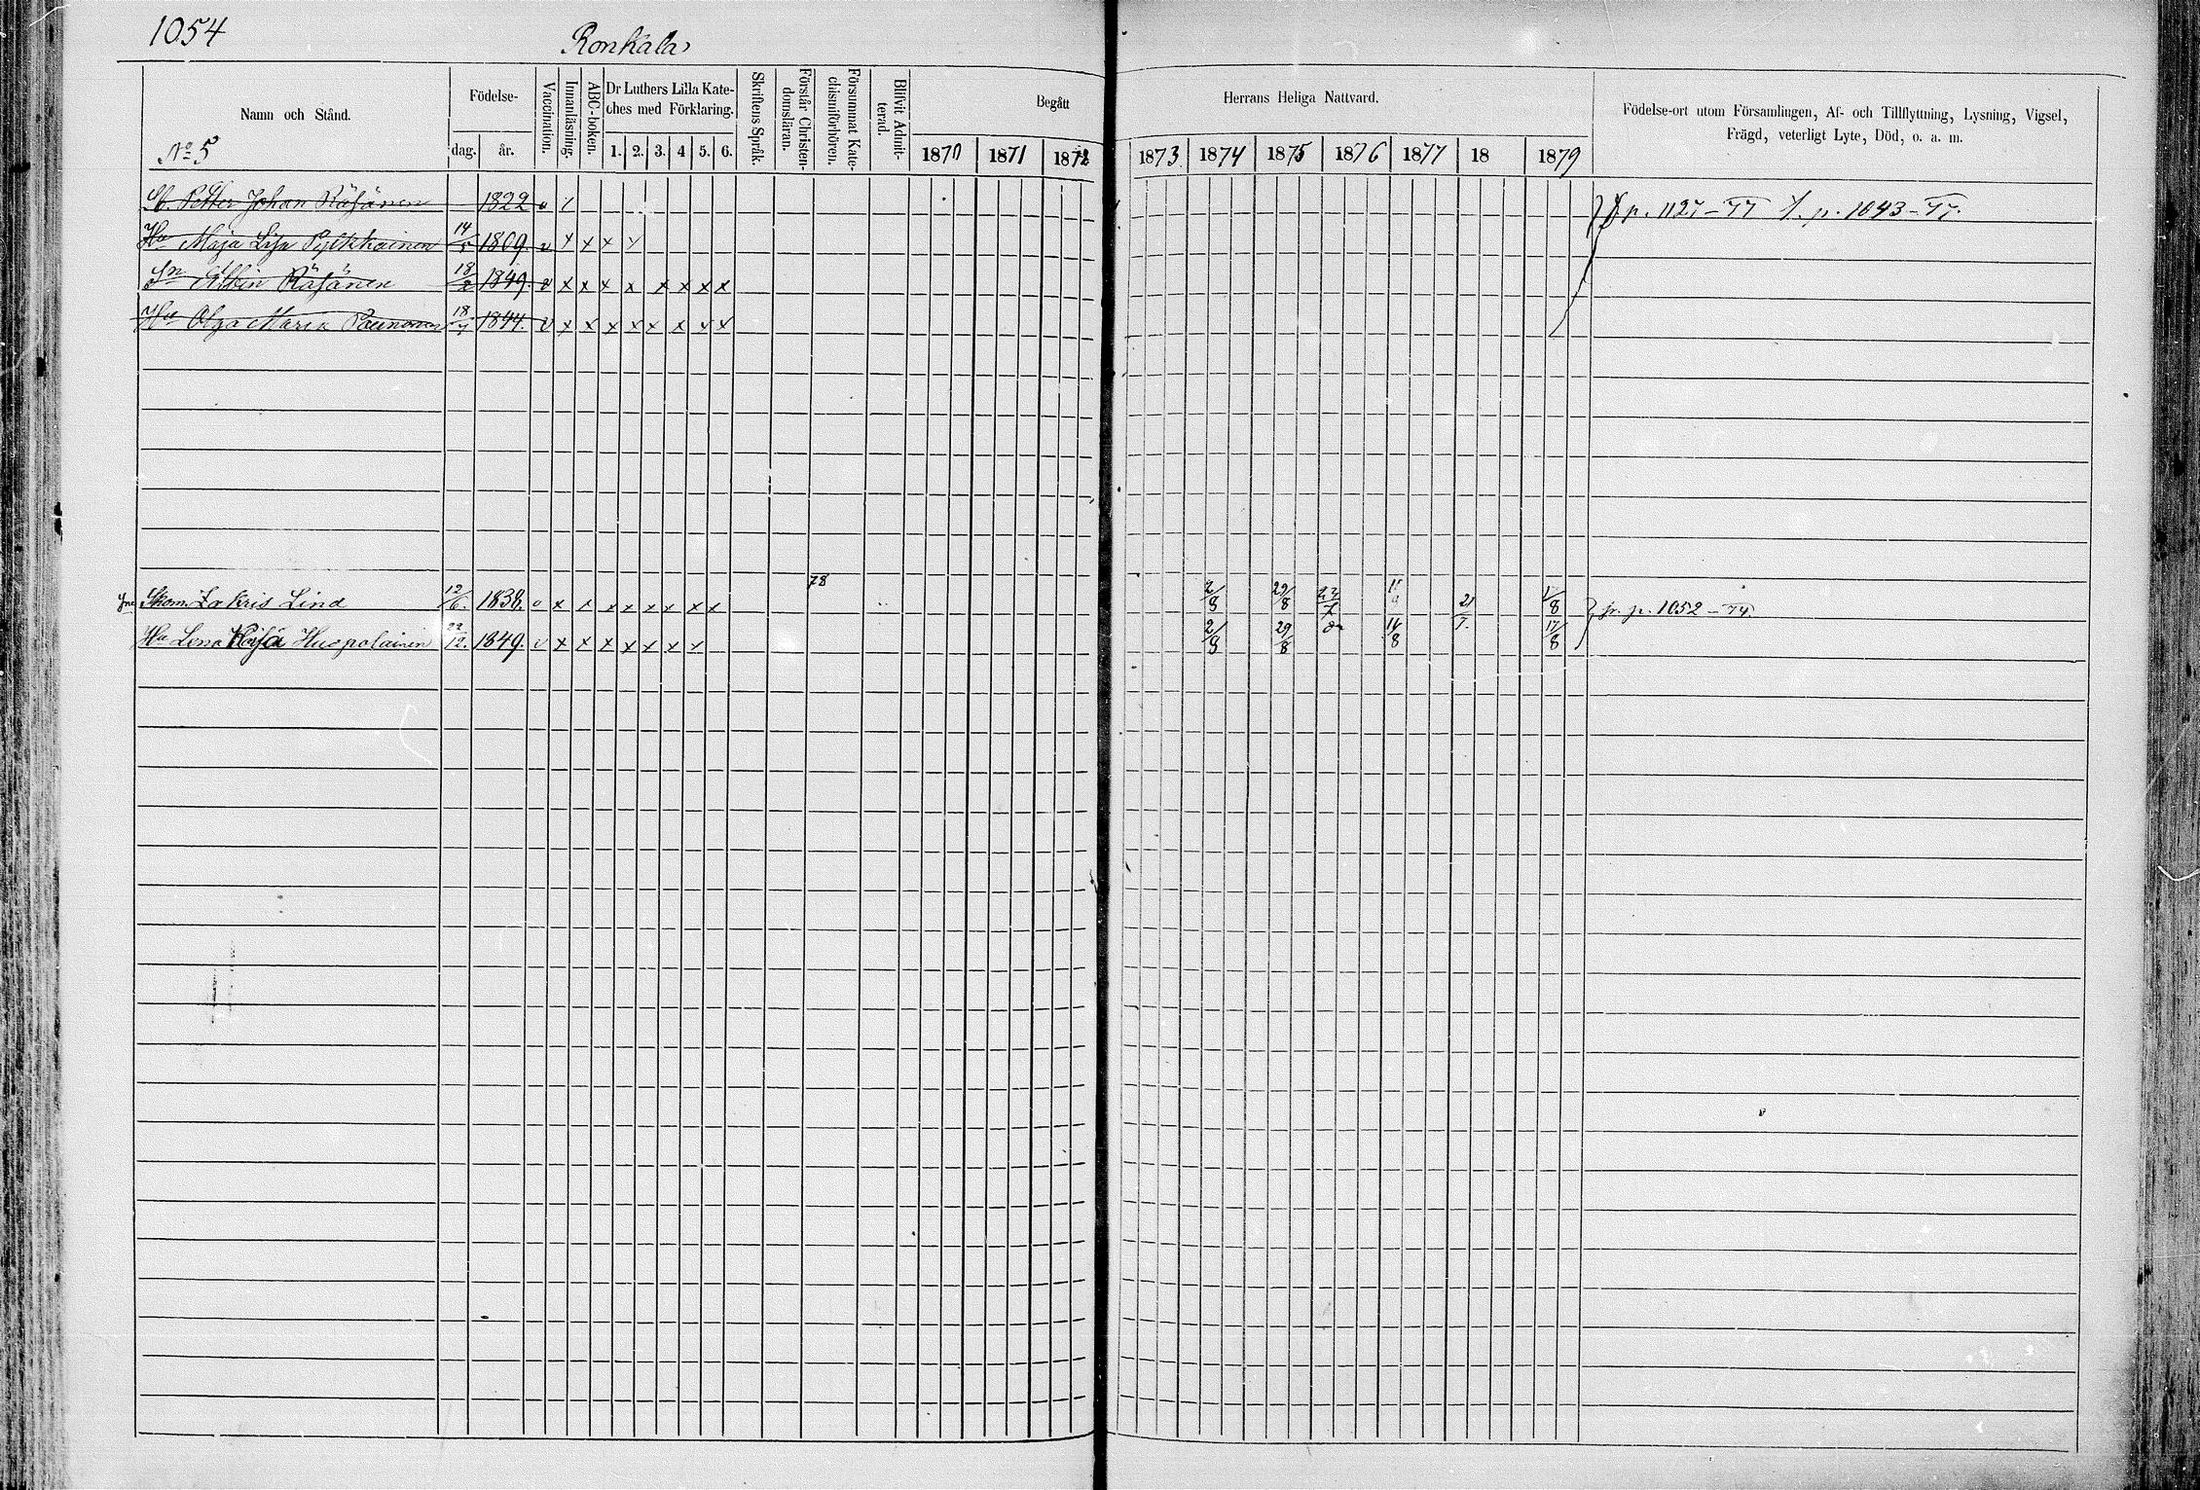 1054
Ronkala
Namn och Stånd.
No 5
Födelse-
dag. år.
Vaccination.
Innanläsning.
ABC-boken.
Dr Luthers Lilla Kate-
ches med Förklaring.
1. 2. 3. 4 5. 6.
Skriftens Språk.
Förstår Christen-
domsläran.
Försummat Kate-
chismiförhören.
Blifvit Admit-
terad.
Begått
1870 1871 1872
Herrans Heliga Nattvard.
1873 1874 1875 1876 1877 18 1879
Födelse-ort utom Församlingen, Af- och Tillflyttning, Lysning, Vigsel,
Frägd, veterligt Lyte, Död, o. a. m.
Petter Johan Räsänen 1822 p. 1127-77 p. 1043-77.
Hu Maja Lisa Pylkkainen 14/5 1809. v x x x
Sn Albin Räsänen 18/2 1849. v x x x x x x x x
Hu Olga Maria 18/7 1844. v x x x x x x x x
78
Skom. Zakris Lind 12/6. 1838. v x x x x x x x 2/8 29/8 21 /8 fr. p. 1052-74.
Hu Lena Kajsa Huspolainen 22/12. 1849. v x x x x x x x 2/8 29/8 do 16/8 17/8